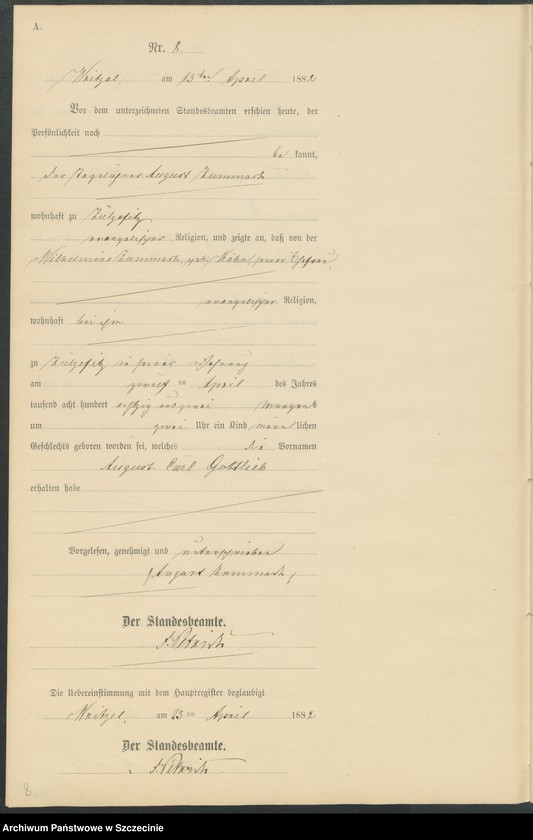 A.
Nr. 8
Waitzel, am 13ten April 1882
Vor dem unterzeichneten Standesbeamten erschien heute, der
Persönlichkeit nach
be kannt,
der Tagelöhner August Rummach
wohnhaft zu
evangelischer Religion, und zeigte an, daß von der
Wilhelmine geb. seiner Ehefrau,
evangelischer Religion,
wohnhaft bei ihm
zu in seiner Wohnung
am zwölf ten April des Jahres
tausend acht hundert achtzig und zwei Morgens
um zwei Uhr ein Kind männ lichen
Geschlechts geboren worden sei, welches die Vornamen
August Carl Gottlieb
erhalten habe
Vorgelesen, genehmigt und unterschrieben
August
Der Standesbeamte.
Die Uebereinstimmung mit dem Hauptregister beglaubigt
Waitzel, am 13 ten April 1882
Der Standesbeamte.
8
Archiwum Państwowe w Szczecinie